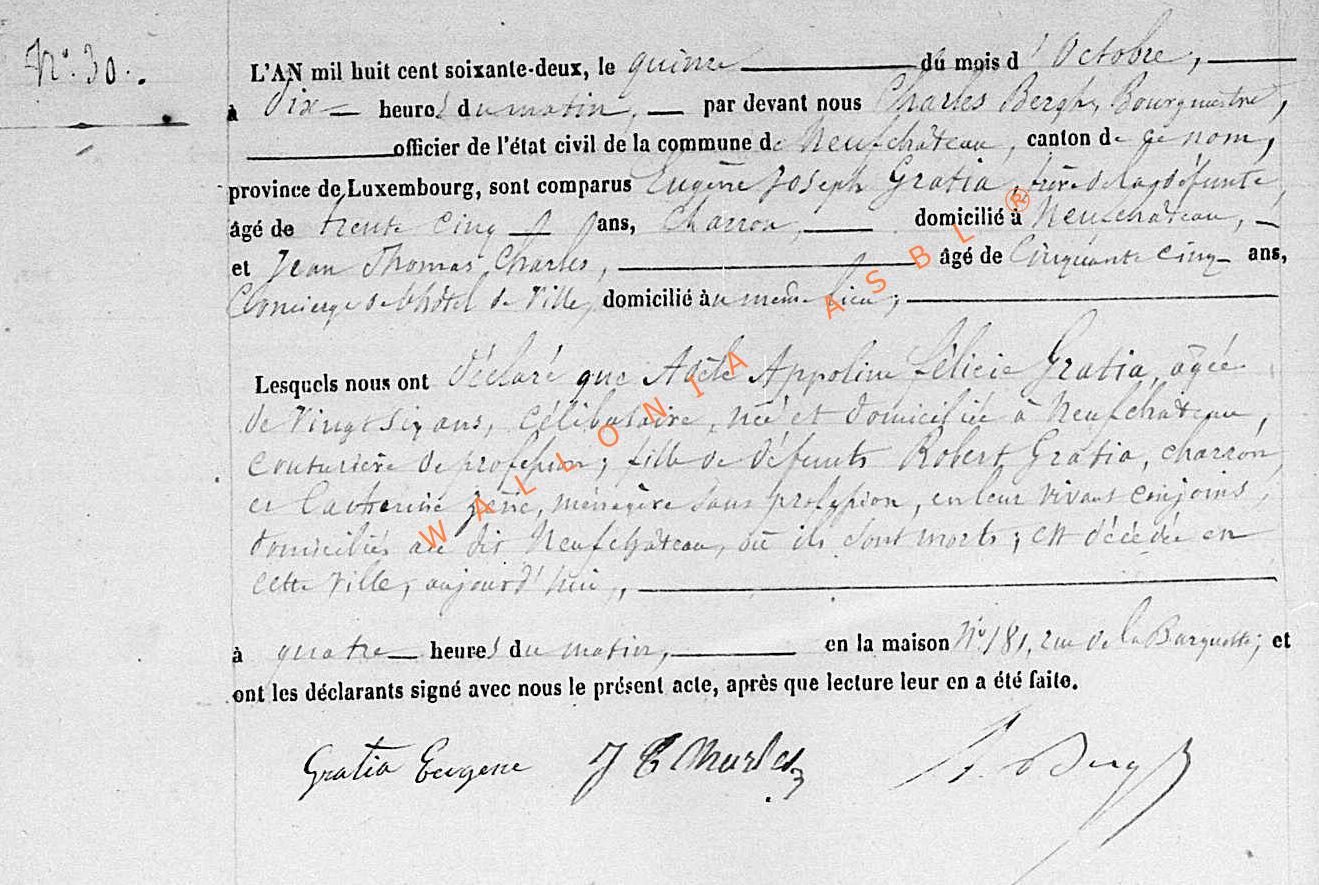 N° 30.
L'AN mil huit cent soixante-deux, le quinze du mois d'Octobre,
à Dix heures du matin, par devant nous Charles Bergh, Bourgmestre,
officier de l'état civil de la commune de Neufchâteau, canton de ce nom,
province de Luxembourg, sont comparus Eugène Joseph Gratia, frère de la défunte,
âgé de trente cinq ans, Charron, domicilié à Neufchâteau,
et Jean Thomas Charles, âgé de Cinquante cinq ans,
Concierge de l'hôtel de Ville, domicilié au même lieu,
Lesquels nous ont déclaré que Adèle Appoline félicie Gratia, agée
de Vingt six ans, Célibataire, née et domiciliée à Neufchâteau,
Couturière de profession; fille de défunts Robert Gratia, charron,
et Catherine, ménagère sans profession, en leur vivant conjoints,
domiciliés au dit Neufchâteau, où ils sont morts; est décédée en
cette Ville, aujourd'hui,
à quatre heures du matin, en la maison N° 181, rue de la Barquette; et
ont les déclarants signé avec nous le présent acte, après que lecture leur en a été faite.
Gratia Eugene J T Charles
WALLONIA ASBL ®